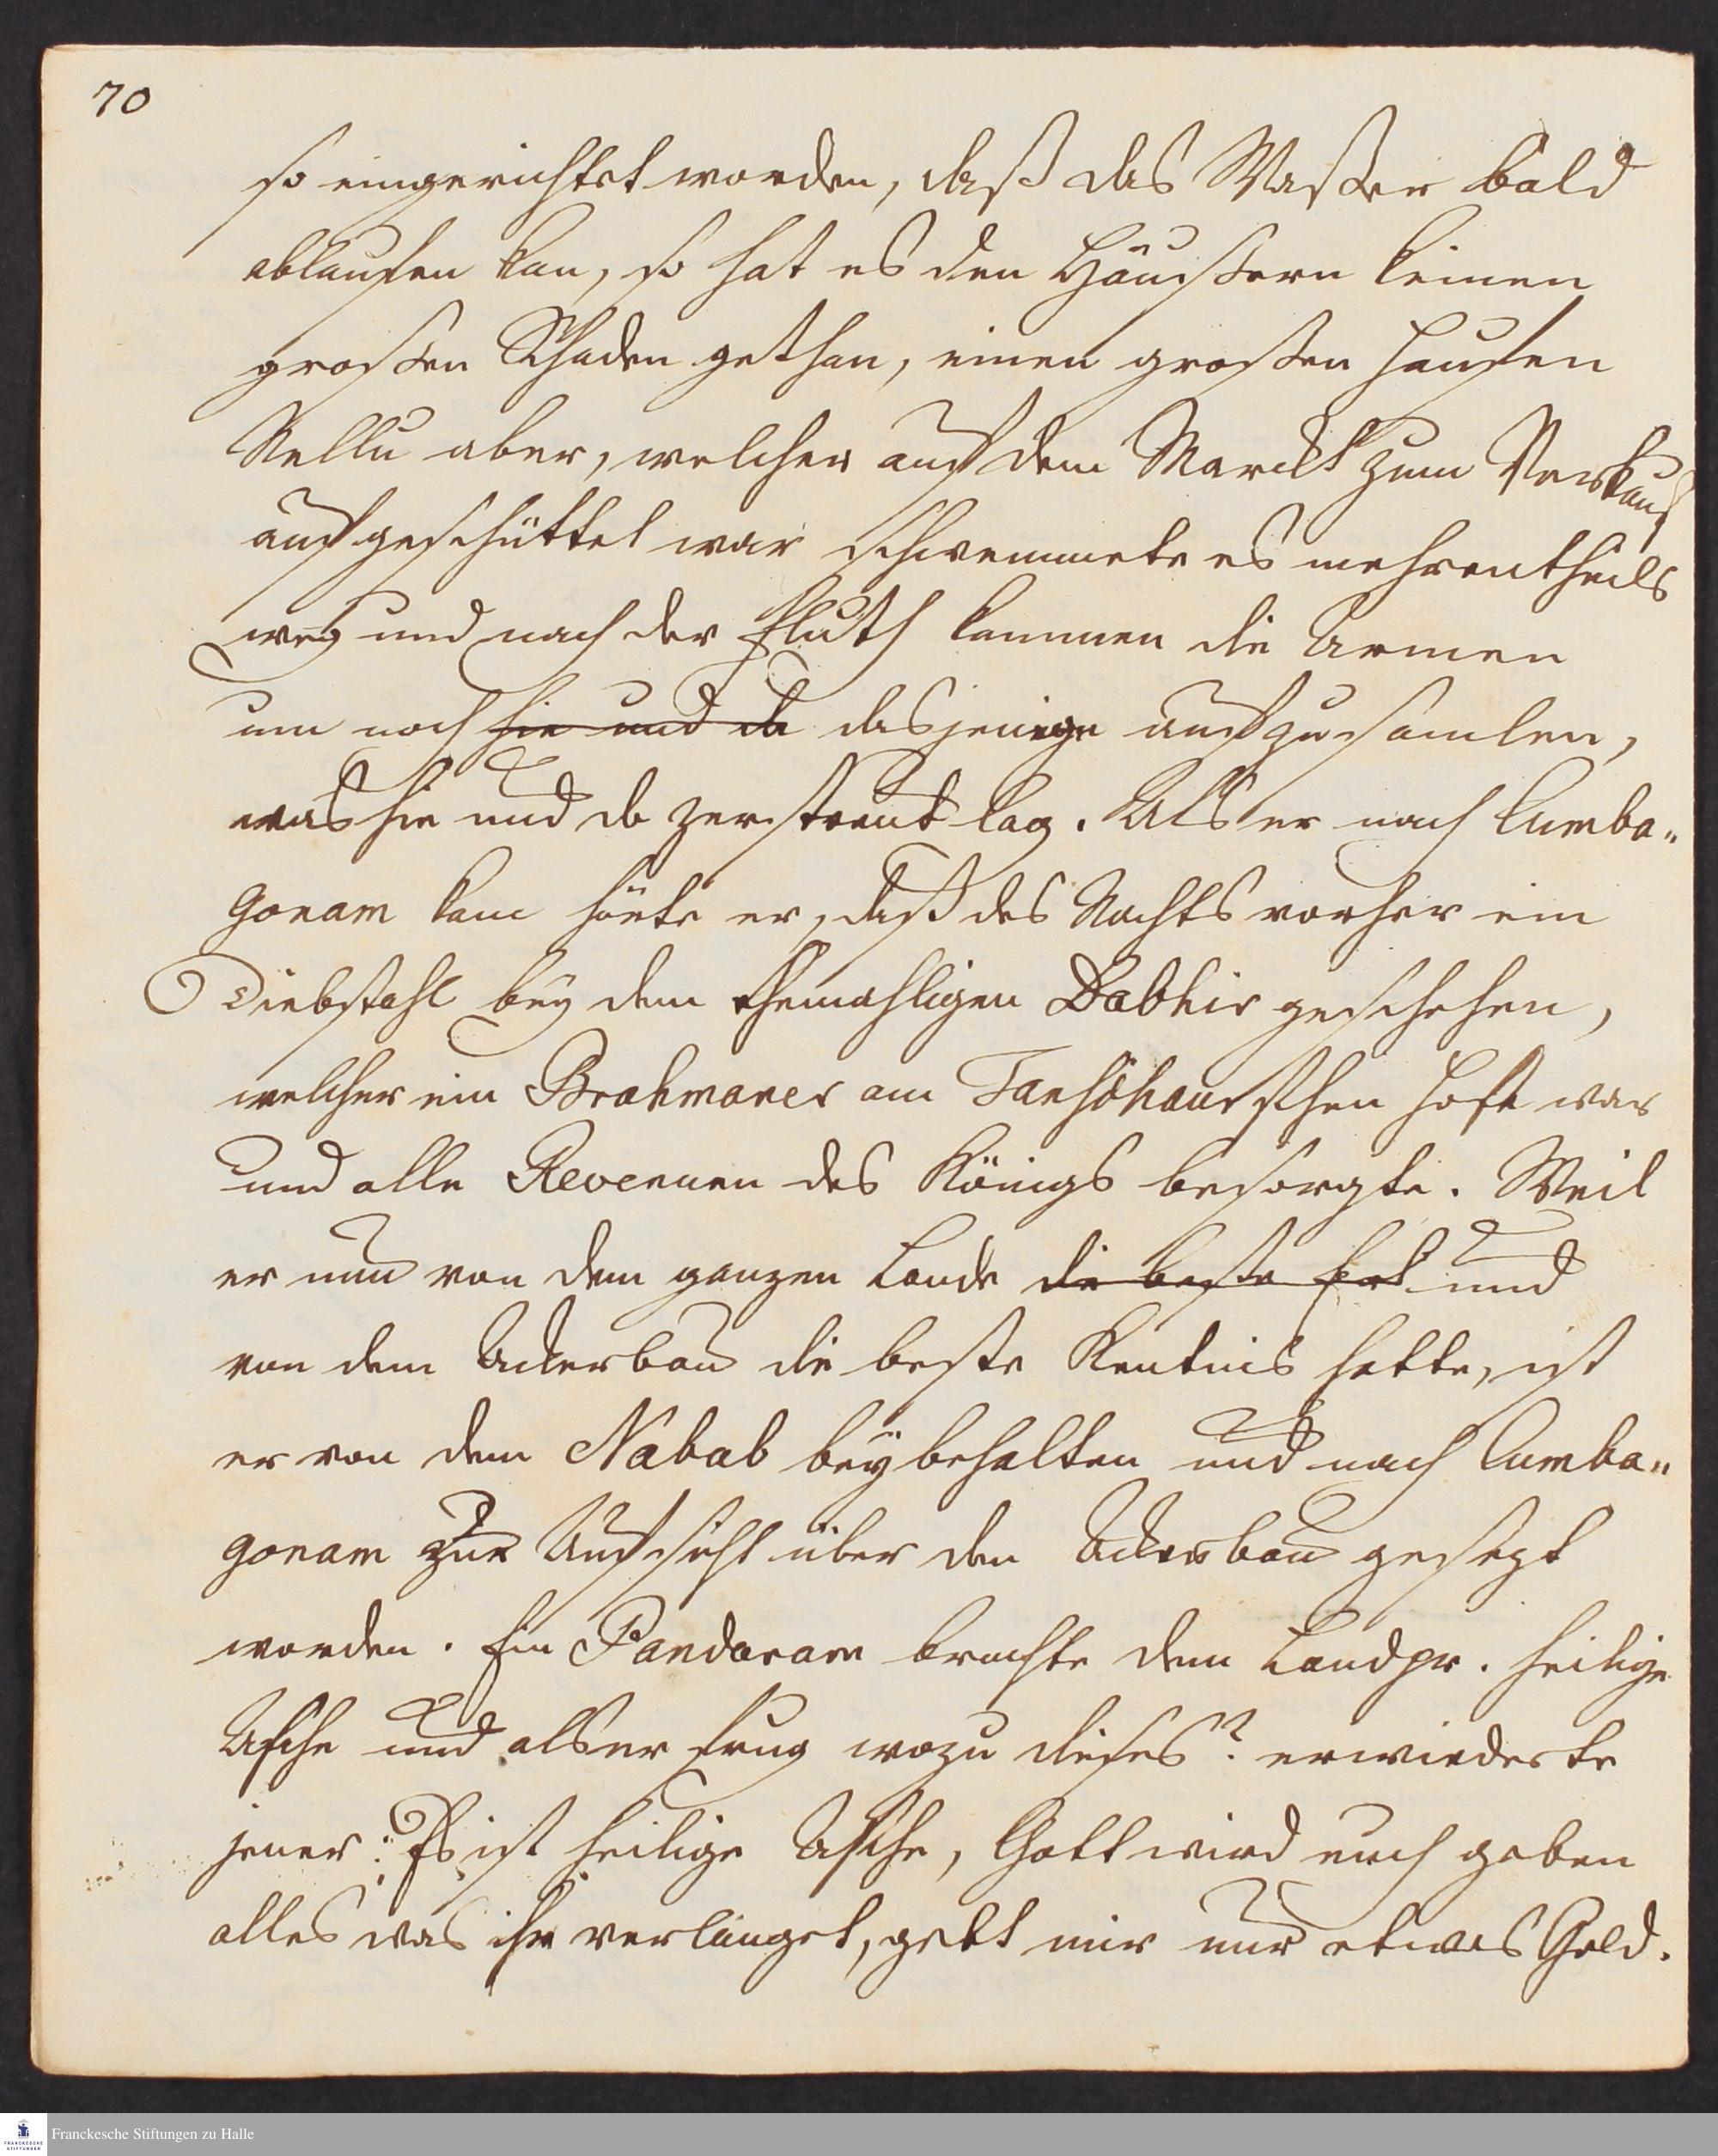 70
so eingerichtet worden, daß das Waßer bald
ablaufen kan, so hat es den Häußern keinen
großen Schaden gethan, einen großen Haufen
Nellu aber, welcher auf dem Marckt zum Verkauf
aufgeschüttet war schwemmete es mehrentheils
weg und nach der Fluth kammen die Armen
um noch hie und da dasjenige aufzusamlen,
was hie und da zerstreut lag. Als er nach Cumba„
gonam kam hörte er, daß des Nachts vorher ein
Diebstahl bey dem ehemahligen Dabhir geschehen,
welcher ein Brahmaner am Tanschaurschen Hofe war
und alle Revenuen des Königs besorgte. Weil
er nun von dem ganzen Lande die beste und
von dem Ackerbau die beste Kentnis hatte, ist
er von dem Nabab beybehalten und nach Cumba„
gonam zur Aufsicht über den Ackerbau gesezt
worden. Ein Pandaram brachte dem Landpr. heilige
Asche und als er frug wozu dieses? erwiederte
jener: Es ist heilige Asche, Gott wird euch geben
alles was ihr verlanget, gebt mir nur etwas Geld.
Franckesche Stiftungen zu Halle